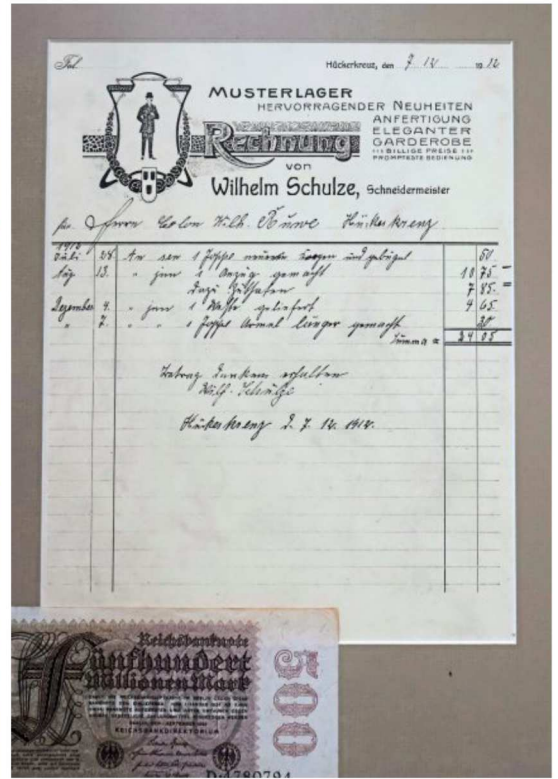 Tel.
Hückerkreuz, den 7. 12. 1912
MUSTERLAGER
HERVORRAGENDER NEUHEITEN
ANFERTIGUNG
ELEGANTER
GARDEROBE
BILLIGE PREISE
PROMPTESTE BEDIENUNG
Rechnung
von
Wilhelm Schulze, Schneidermeister
für Herrn Colon Wilh. Hückerkreuz
1912
Juli 28. An den 1 Joppe und gebügel 50
Aug 13. " 1 Anzug gemacht 10 75
Dazu Zuthaten 7 85
Dezember 4. " 1 Weste geliefert 4 65
" 7. " " 1 Joppe Ärmel länger gemacht
Summa = 24 05
Betrag dankend erhalten
Wilh. Schulze
Hückerkreuz d. 7. 12. 1912.
Reichsbanknote
Fünfhundert
Millionen Mark
REICHSBANKDIREKTORIUM
500
D·4780794